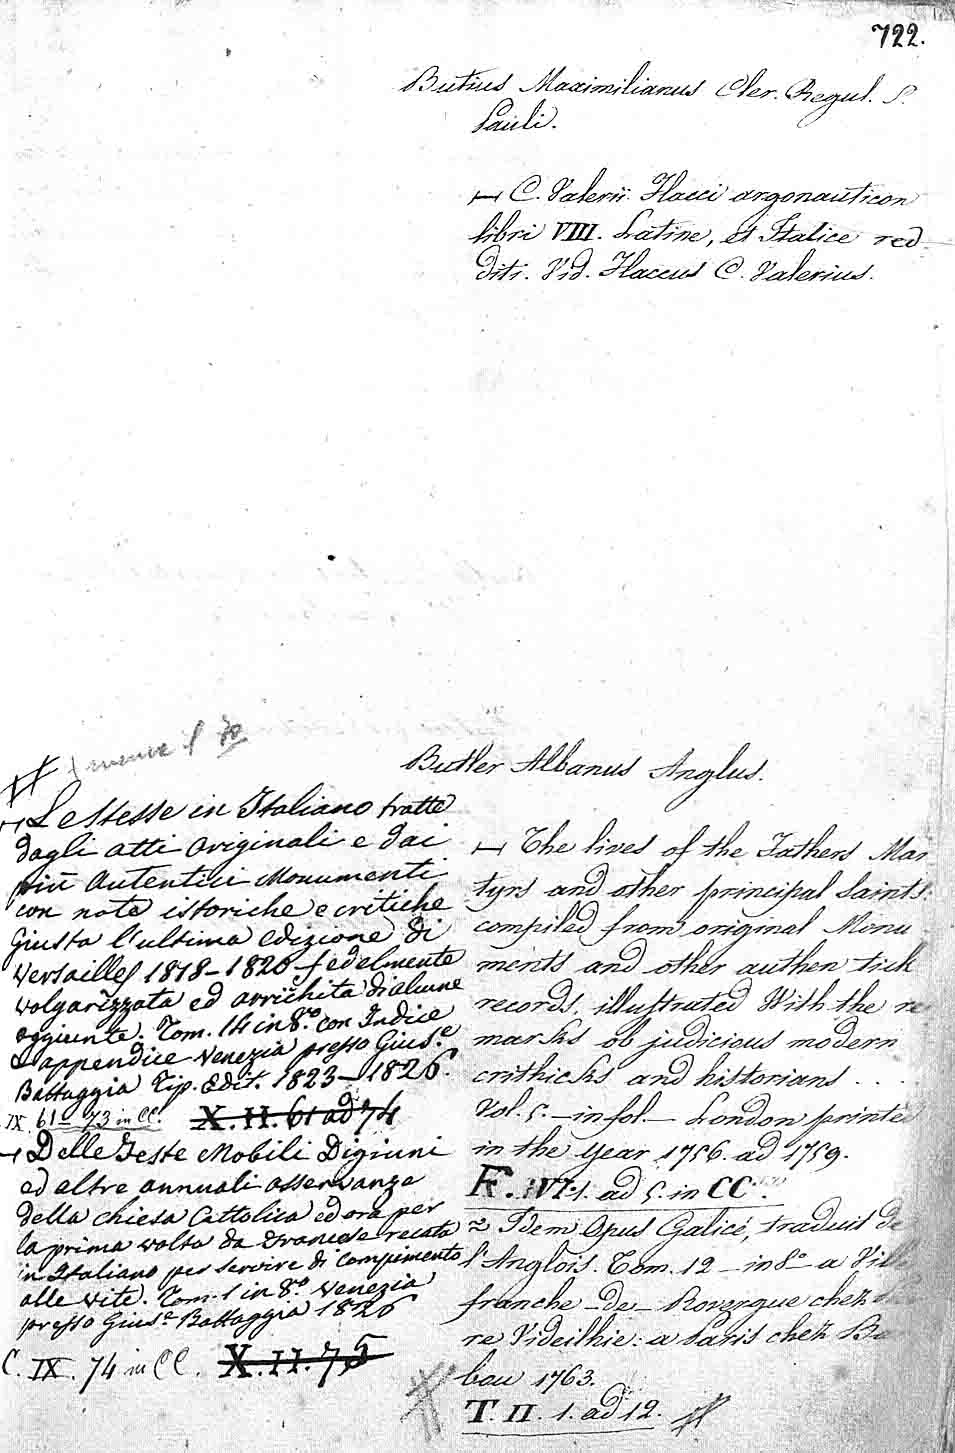 722.
Butius Maximilianus Cler. Regul. S.
Pauli.
C. Valerii Flacci argonauticon
libri VIII. Latine, et Italice red
diti. Vid. Flaccus C. Valerius.
Butler Albanus Anglus.
The lives of the Fathers Mar
tyrs and other principal Saints.
compiled from original Monu
ments and other authen tick
records, illustrated With the re
marks ob judicious modern
crithicks and historians . . .
Vol. 5. in fol. London printed
in the year 1756. ad 1759.
F. IVI. 1. ad 5. in CC
2 Idem Opus Galicé, traduit de
l'Anglois. Tom. 12 in 8° a Ville
franche-de-Rovergue chez
re Videilhie: a Paris chez Ba
bou 1763.
T. II. 1. ad 12.
Le Stesse in Italiano tratte
dagli atti originali e dai
più Autentici Monumenti
con note istoriche e critiche
Giusta l'ultima edizione di
Versailles 1818-1820 fedelmente
volgarizzata ed arrichita di alcune
aggiunte. Tom. 14 in 8.° con Indice
e appendice Venezia presso Gius.e
Battaggia Tip. Edit. 1823-1826.
IX. 61 a 73 in CC. X. II. 61 ad 74
Delle Feste Mobili Digiuni
ed altre annuali osservanze
della chiesa Cattolica ed ora per
la prima volta da Francese recata
in Italiano per servire di Compimento
alle vite. Tom. 1 in 8.° Venezia
presso Gius.e Battaggia 1826
C. IX. 74 in CC. X. II. 75